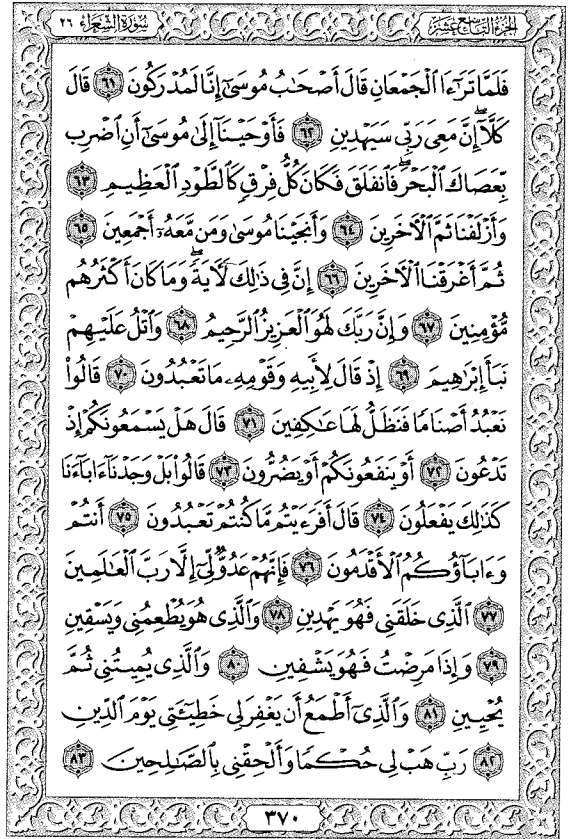 سورة الشعراء ٢٦
الجزء التاسع عشر
فَلَمَّا تَرَٰٓءَا ٱلۡجَمۡعَانِ قَالَ أَصۡحَٰبُ مُوسَىٰٓ إِنَّا لَمُدۡرَكُونَ ٦١ قَالَ
كَلَّآۖ إِنَّ مَعِيَ رَبِّي سَيَهۡدِينِ ٦٢ فَأَوۡحَيۡنَآ إِلَىٰ مُوسَىٰٓ أَنِ ٱضۡرِب
بِّعَصَاكَ ٱلۡبَحۡرَۖ فَٱنفَلَقَ فَكَانَ كُلُّ فِرۡقٖ كَٱلطَّوۡدِ ٱلۡعَظِيمِ ٦٣
وَأَزۡلَفۡنَا ثَمَّ ٱلۡأٓخَرِينَ ٦٤ وَأَنجَيۡنَا مُوسَىٰ وَمَن مَّعَهُۥٓ أَجۡمَعِينَ ٦٥
ثُمَّ أَغۡرَقۡنَا ٱلۡأٓخَرِينَ ٦٦ إِنَّ فِي ذَٰلِكَ لَأٓيَةٗۖ وَمَا كَانَ أَكۡثَرُهُم
مُّؤۡمِنِينَ ٦٧ وَإِنَّ رَبَّكَ لَهُوَ ٱلۡعَزِيزُ ٱلرَّحِيمُ ٦٨ وَٱتۡلُ عَلَيۡهِمۡ
نَبَأَ إِبۡرَٰهِيمَ ٦٩ إِذۡ قَالَ لِأَبِيهِ وَقَوۡمِهِۦ مَا تَعۡبُدُونَ ٧٠ قَالُواْ
نَعۡبُدُ أَصۡنَامٗا فَنَظَلُّ لَهَا عَٰكِفِينَ ٧١ قَالَ هَلۡ يَسۡمَعُونَكُمۡ إِذۡ
تَدۡعُونَ ٧٢ أَوۡ يَنفَعُونَكُمۡ أَوۡ يَضُرُّونَ ٧٣ قَالُواْ بَلۡ وَجَدۡنَآ ءَابَآءَنَا
كَذَٰلِكَ يَفۡعَلُونَ ٧٤ قَالَ أَفَرَءَيۡتُم مَّا كُنتُمۡ تَعۡبُدُونَ ٧٥ أَنتُمۡ
وَءَابَآؤُكُمُ ٱلۡأَقۡدَمُونَ ٧٦ فَإِنَّهُمۡ عَدُوّٞ لِّيٓ إِلَّا رَبَّ ٱلۡعَٰلَمِينَ
٧٧ ٱلَّذِي خَلَقَنِي فَهُوَ يَهۡدِينِ ٧٨ وَٱلَّذِي هُوَ يُطۡعِمُنِي وَيَسۡقِينِ
٧٩ وَإِذَا مَرِضۡتُ فَهُوَ يَشۡفِينِ ٨٠ وَٱلَّذِي يُمِيتُنِي ثُمَّ
يُحۡيِينِ ٨١ وَٱلَّذِيٓ أَطۡمَعُ أَن يَغۡفِرَ لِي خَطِيٓـَٔتِي يَوۡمَ ٱلدِّينِ
٨٢ رَبِّ هَبۡ لِي حُكۡمٗا وَأَلۡحِقۡنِي بِٱلصَّٰلِحِينَ ٨٣
٣٧٠